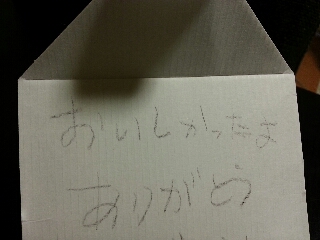 おいしかったよ
ありがとう